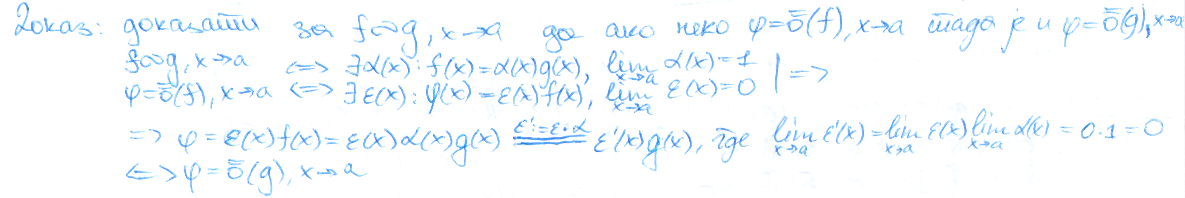 Доказ: доказати за f∾g, x→a да ако неко φ=ō̄(f), x→a тада је и φ=ō̄(g), x→a
f∾g, x→a <=> ∃α(x): f(x)=α(x)g(x), lim_{x→a} α(x)=1
φ=ō̄(f), x→a <=> ∃ε(x): φ(x)=ε(x)f(x), lim_{x→a} ε(x)=0 | =>
=> φ=ε(x)f(x)=ε(x)α(x)g(x) \overset{ε':=ε·α}{=} ε'(x)g(x), где lim_{x→a} ε'(x)=lim_{x→a} ε(x) lim_{x→a} α(x) = 0·1=0
<=> φ=ō̄(g), x→a